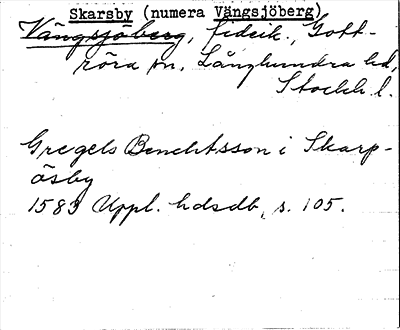 Skarsby (numera Vängsjöberg)
Vängsjöberg, fideik., Gott-
röra sn, Långhundra hd,
Stockh. l.
Gregels Bencktsson i Skarp-
åsby
1583 Uppl. hdsdb, s. 105.